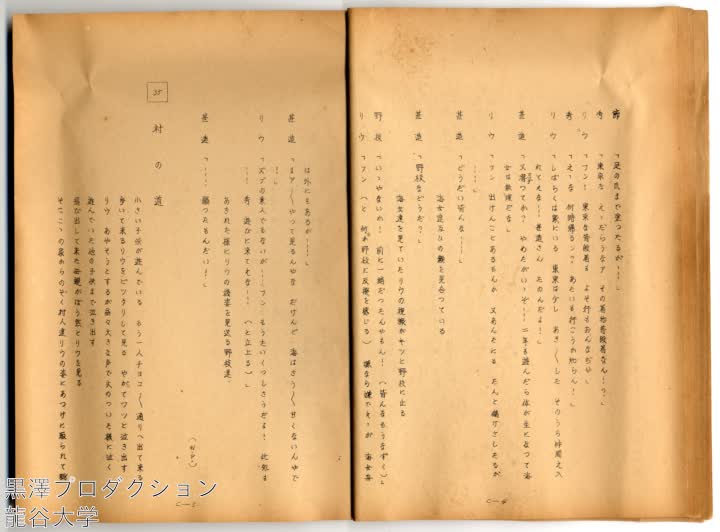 市　「足の爪まで塗つたるが……」
考　「東京な　えゝだらうなア　その着物普段着なん！？」
リウ　「フン！　東京な普段着る　よそ行もおんなだや」
考　「えゝな　何時帰るン？　あたいも行こうか知らん！」
リウ　「しばらくは家にいる　東京は少し　あき〳〵した　そのうち仲間え入
れてえな！　甚造さん　たのんだよ！」
甚造　「又潜つてか？　やめたがいゝぞ！　二年も遊んだら体が生になつて海
女は無理だな」
リウ　「フン　出けんことあるもんか　又あんたにも　たんと儲けさしたるが
……」
甚造　「どうだい皆んな……」
海女達互ひの顔を見合つている
甚造　「野枝などうだ？」
海女達を見ていたリウの視線がキツと野枝に止る
野枝　「いゝやないか！　前に一緒だつたんやもん！（皆んなもうなずく）」
リウ　「フン（と　何か野枝に反撥を感じる）嫌なら嫌でえゝが　海女舟
は外にもあるが……」
甚造　「まア〳〵やつて見るんやな　だけんど　海はさう〳〵甘くないんやで
！」
リウ　「ズブの素人でもないが……フン　もうたいくつしさうだよ！　此処も
考、遊びに来てえな！……（と立上る）」
あきれた様にリウの後姿を見送る野枝達、
甚造　「……　願つたもんだい！」
（W.P.）
35　村の道
小さい子供が遊んでいる　もう一人チヨコ〳〵通りへ出て来る
歩いて来るリウをビツクリして見る　やがてワツと泣き出す
リウ　あやそうとするが益々大きな声で火のついた様に泣く
遊んでいた他の子供まで泣き出す
飛び出して来た母親がぼう然とリウを見る
そこここの家からのぞく村人達リウの姿にあつけに取られて眺
C—4
C—5
黒澤プロダクション
龍谷大学